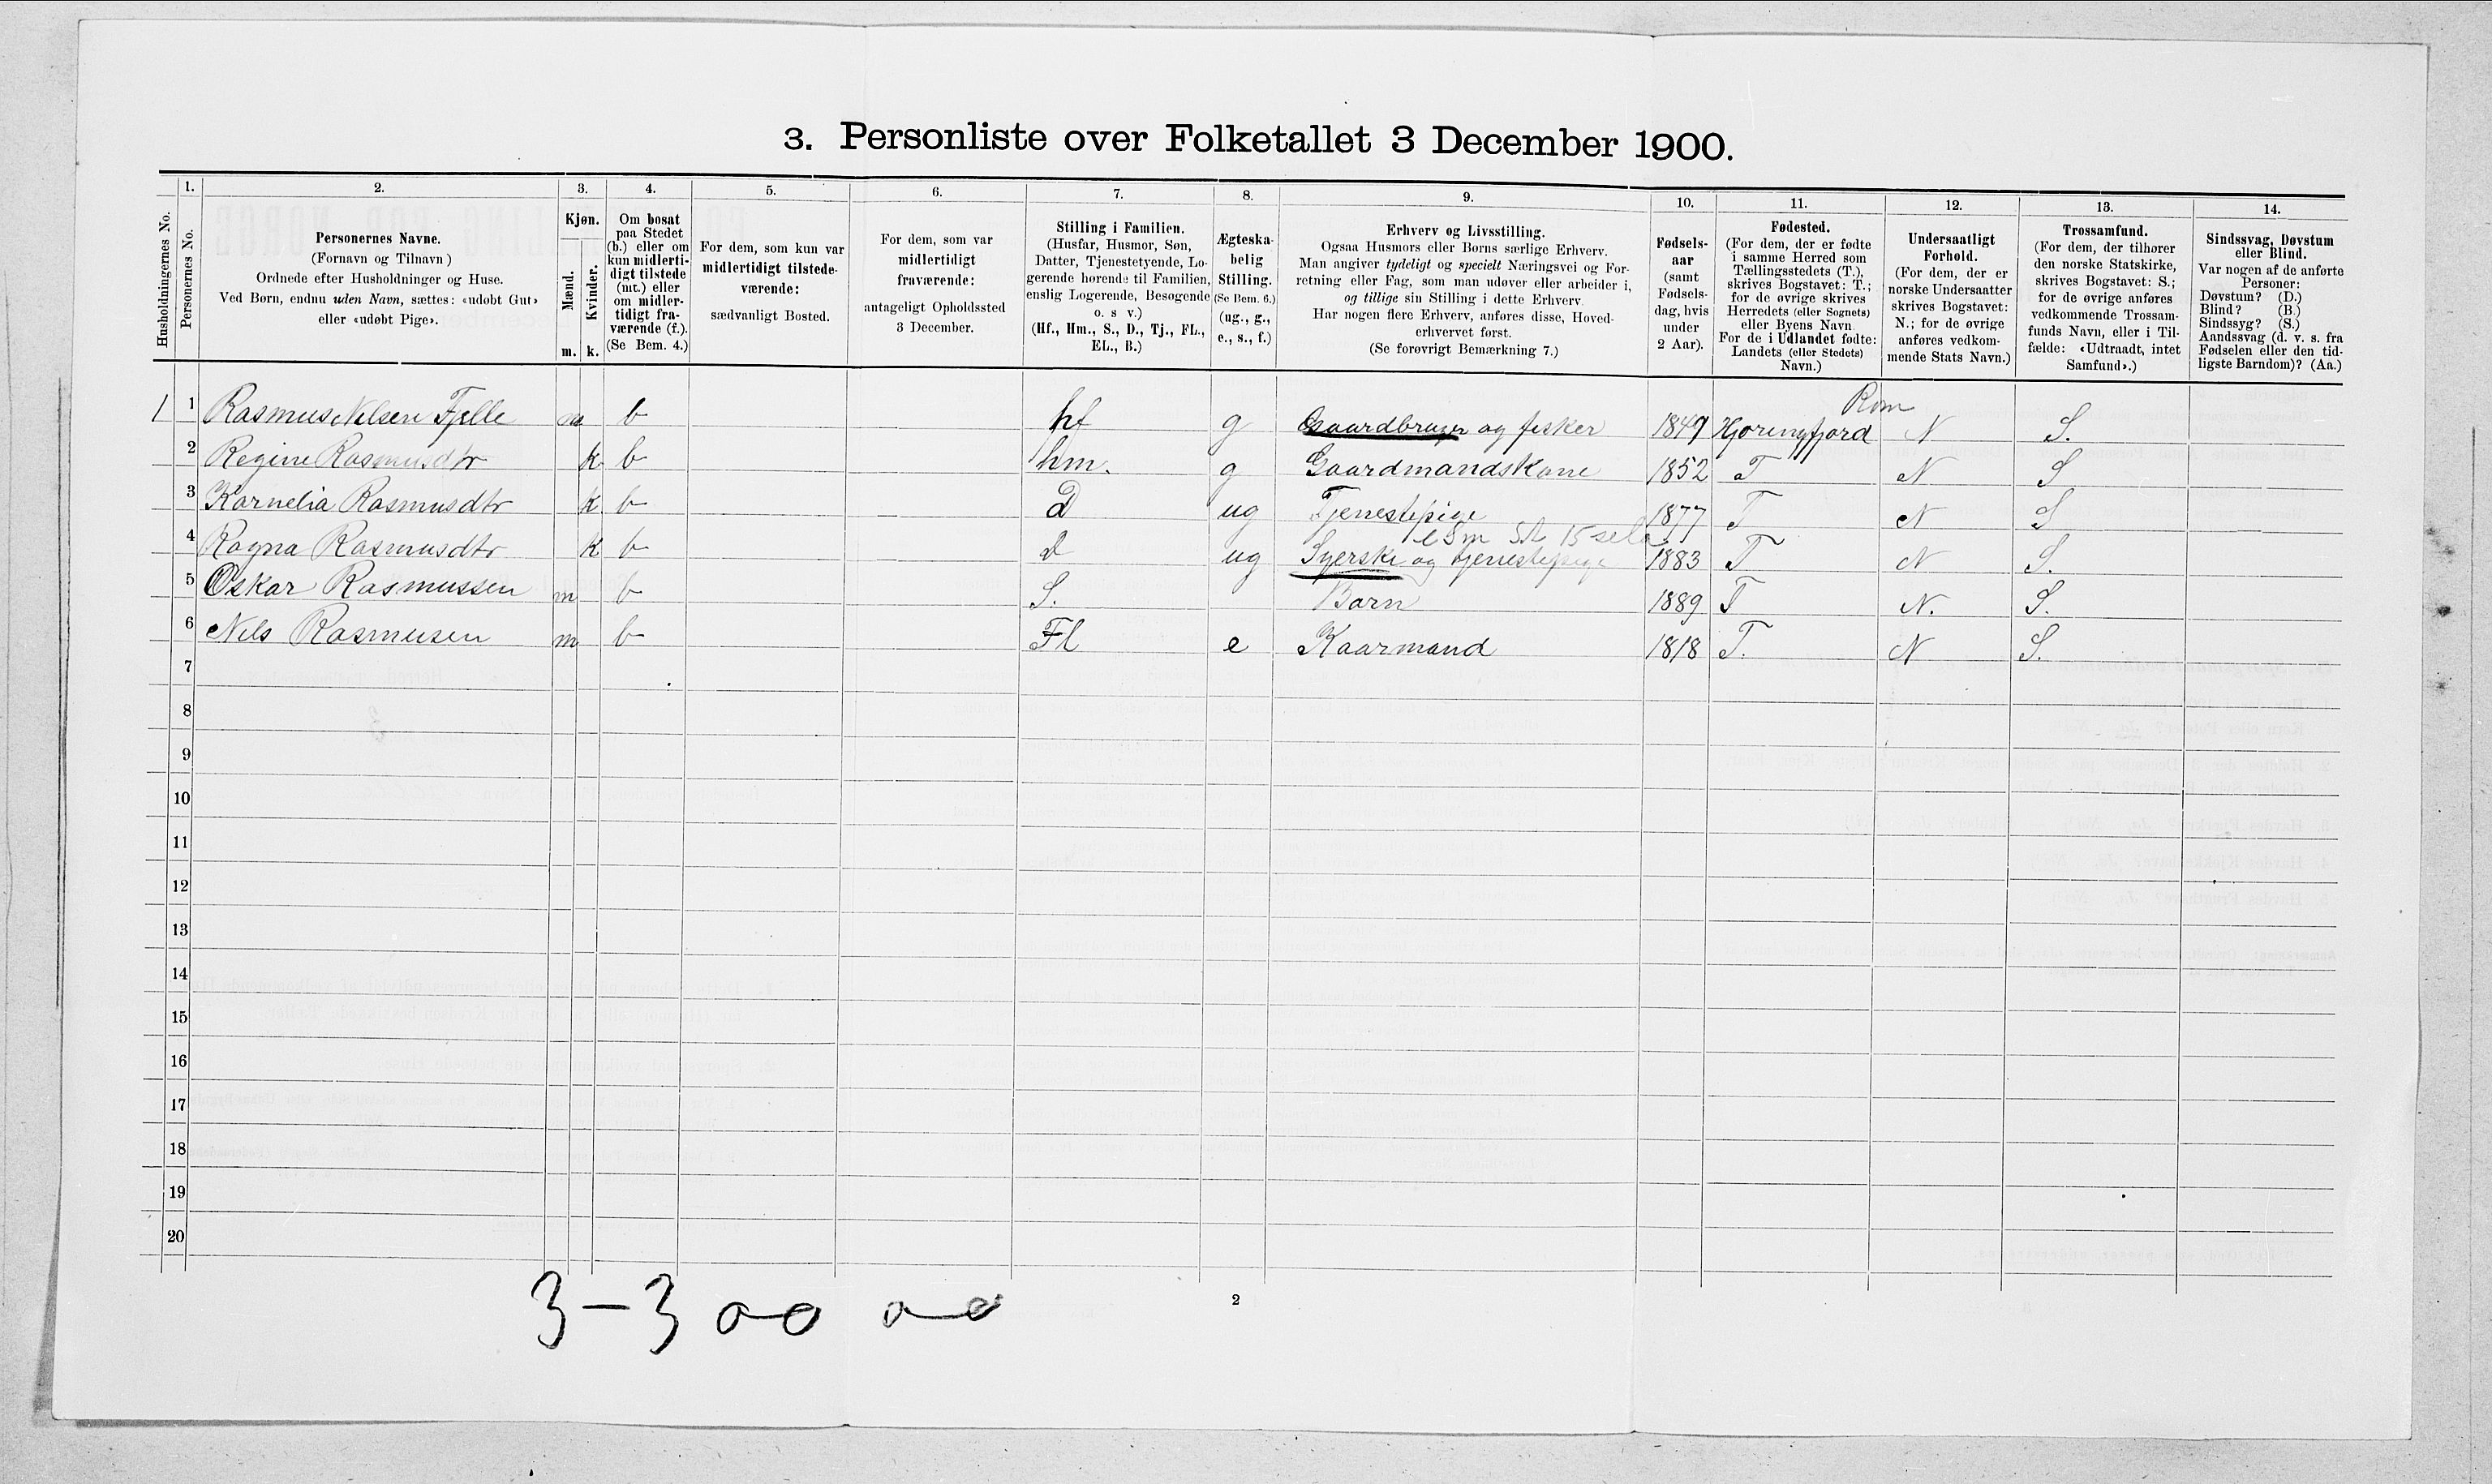 3. Personliste over Folketallet 3 December 1900.
Husholdningernes No.
1.
Personernes No.
2.
Personernes Navne.
(Fornavn og Tilnavn)
Ordnede efter Husholdninger og Huse.
Ved Børn, endnu uden Navn, sættes: «udøbt Gut»
eller «udøbt Pige».
3.
Kjøn.
Mænd.
Kvinder.
m. k.
4.
Om bosat
paa Stedet
(b.) eller om
kun midlerti-
digt tilstede
(mt.) eller
om midler-
tidigt fra-
værende (f.).
(Se Bem. 4.)
5.
For dem, som kun var
midlertidigt tilstede-
værende:
sædvanligt Bosted.
6.
For dem, som var
midlertidigt
fraværende:
antageligt Opholdssted
3 December.
7.
Stilling i Familien.
(Husfar, Husmor, Søn,
Datter, Tjenestetyende, Lo-
gerende hørende til Familien,
enslig Logerende, Besøgende
o. s v.)
(Hf., Hm., S., D., Tj., FL.,
EL., B.)
8.
Ægteska-
belig
Stilling.
(Se Bem. 6.)
(ug., g.,
e., s., f.)
9.
Erhverv og Livsstilling.
Ogsaa Husmors eller Børns særlige Erhverv.
Man angiver tydeligt og specielt Næringsvei og For-
retning eller Fag, som man udøver eller arbeider i,
og tillige sin Stilling i dette Erhverv.
Har nogen flere Erhverv, anføres disse, Hoved-
erhvervet først.
(Se forøvrigt Bemærkning 7.)
10.
Fødsels-
aar
(samt
Fødsels-
dag, hvis
under
2 Aar).
11.
Fødested.
(For dem, der er fødte
i samme Herred som
Tællingsstedets (T.),
skrives Bogstavet: T.;
for de øvrige skrives
Herredets (eller Sognets)
eller Byens Navn
For de i Udlandet fødte:
Landets (eller Stedets)
Navn.)
12.
Undersaatligt
Forhold.
(For dem, der er
norske Undersaatter
skrives Bogstavet:
N.; for de øvrige
anføres vedkom-
mende Stats Navn.)
13.
Trossamfund.
(For dem, der tilhører
den norske Statskirke,
skrives Bogstavet: S.;
for de øvrige anføres
vedkommende Trossam-
funds Navn, eller i Til-
fælde: «Udtraadt, intet
Samfund».)
14.
Sindssvag, Døvstum
eller Blind.
Var nogen af de anførte
Personer:
Døvstum? (D.)
Blind? (B.)
Sindssyg? (S.)
Aandssvag (d. v. s. fra
Fødselen eller den tid-
ligste Barndom)? (Aa.)
1 1 Rasmus Nilsen Fjelle m b hf g Gaardbruger og fisker 1849 Hjoringfjord N S.
2 Regine Rasmusdtr k b hm. g Gaardmandskone 1852 T N S
3 Karnelia Rasmusdtr k b D ug Tjenestepige 1877 T N S
4 Ragna Rasmusdtr k b d ug Syerske og tjenestepige 1883 T N S.
5 Oskar Rasmussen m b S. Barn 1889 T N. S.
6 Nils Rasmusen m b Fl e Kaarmand 1818 T. N S.
7
8
9
10
11
12
13
14
15
16
17
18
19
20
3-3
2